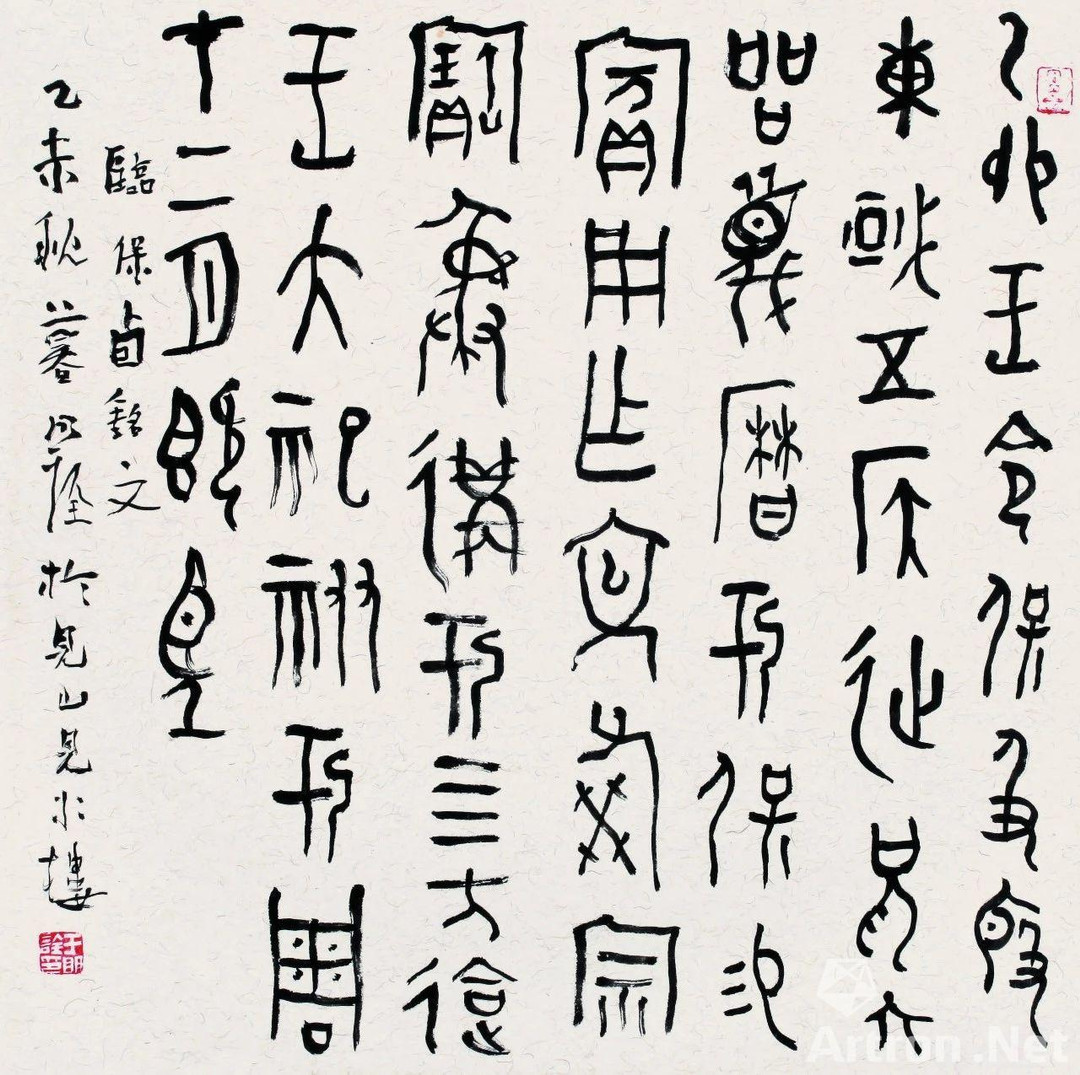 乙卯王令保及殷
東或五侯征兄六
品蔑曆于保易
賓用乍文父癸宗
寶尊彝遘于四方迨
王大祀祓于周
才二月既望
臨保卣銘文
乙未秋暮明詮於見山見水樓
王明詮印
Artron.Net